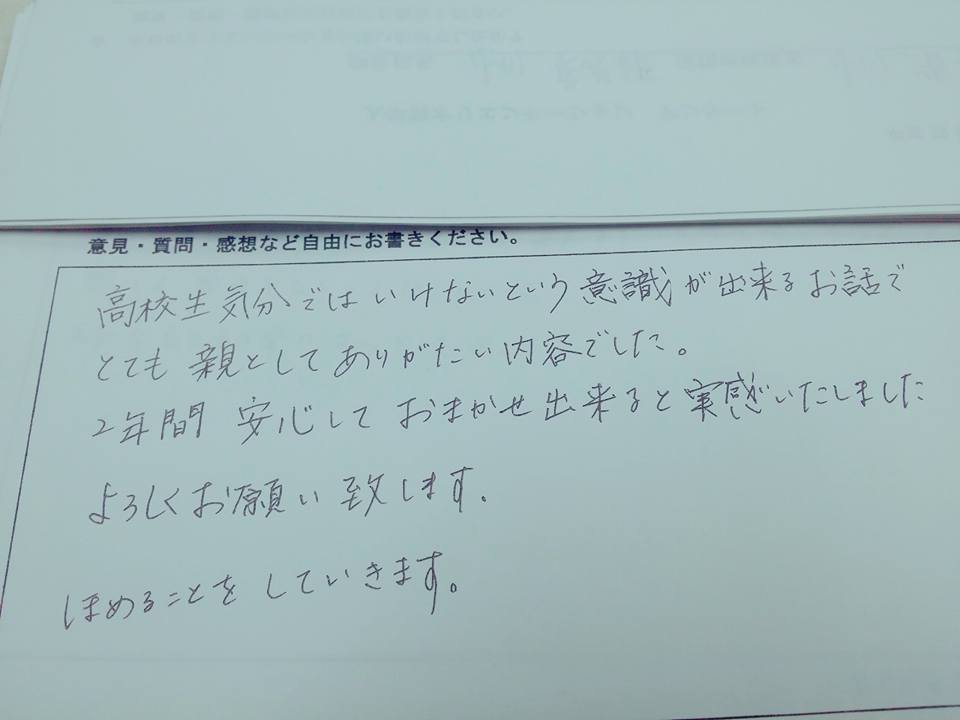 意見・質問・感想など自由にお書きください。
高校生気分ではいけないという意識が出来るお話で
とても親としてありがたい内容でした。
2年間安心しておまかせ出来ると実感いたしました
よろしくお願い致します。
ほめることをしていきます。